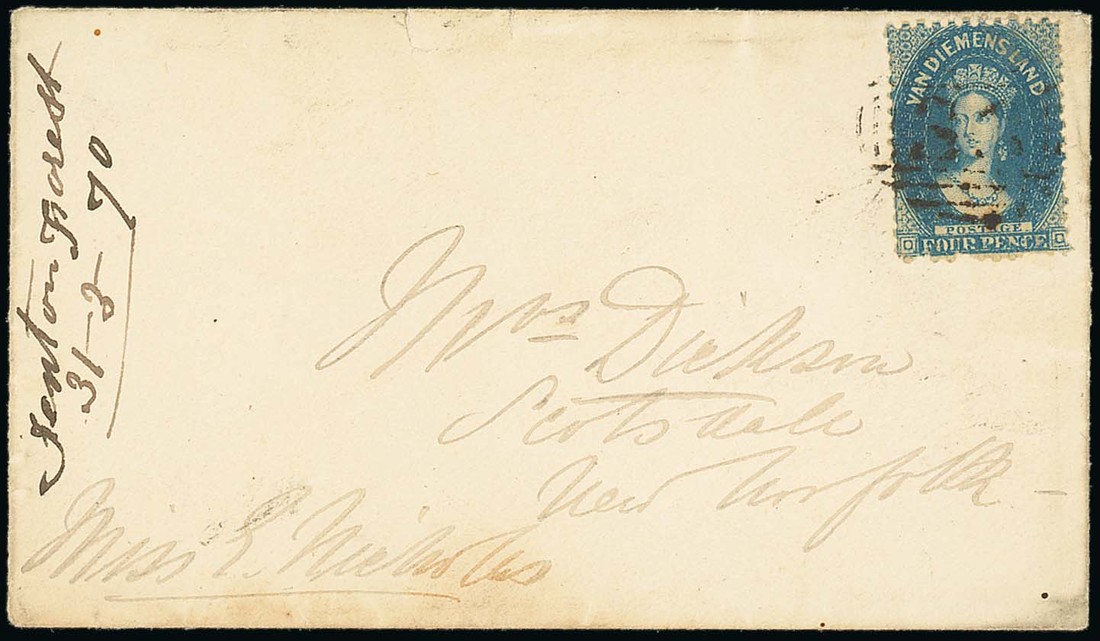 VAN DIEMENS LAND
POSTAGE
FOUR PENCE
Fenton Forest
31-3-70
Mrs Dickson
Scotsdale
New Norfolk -
Miss E. Nicholas